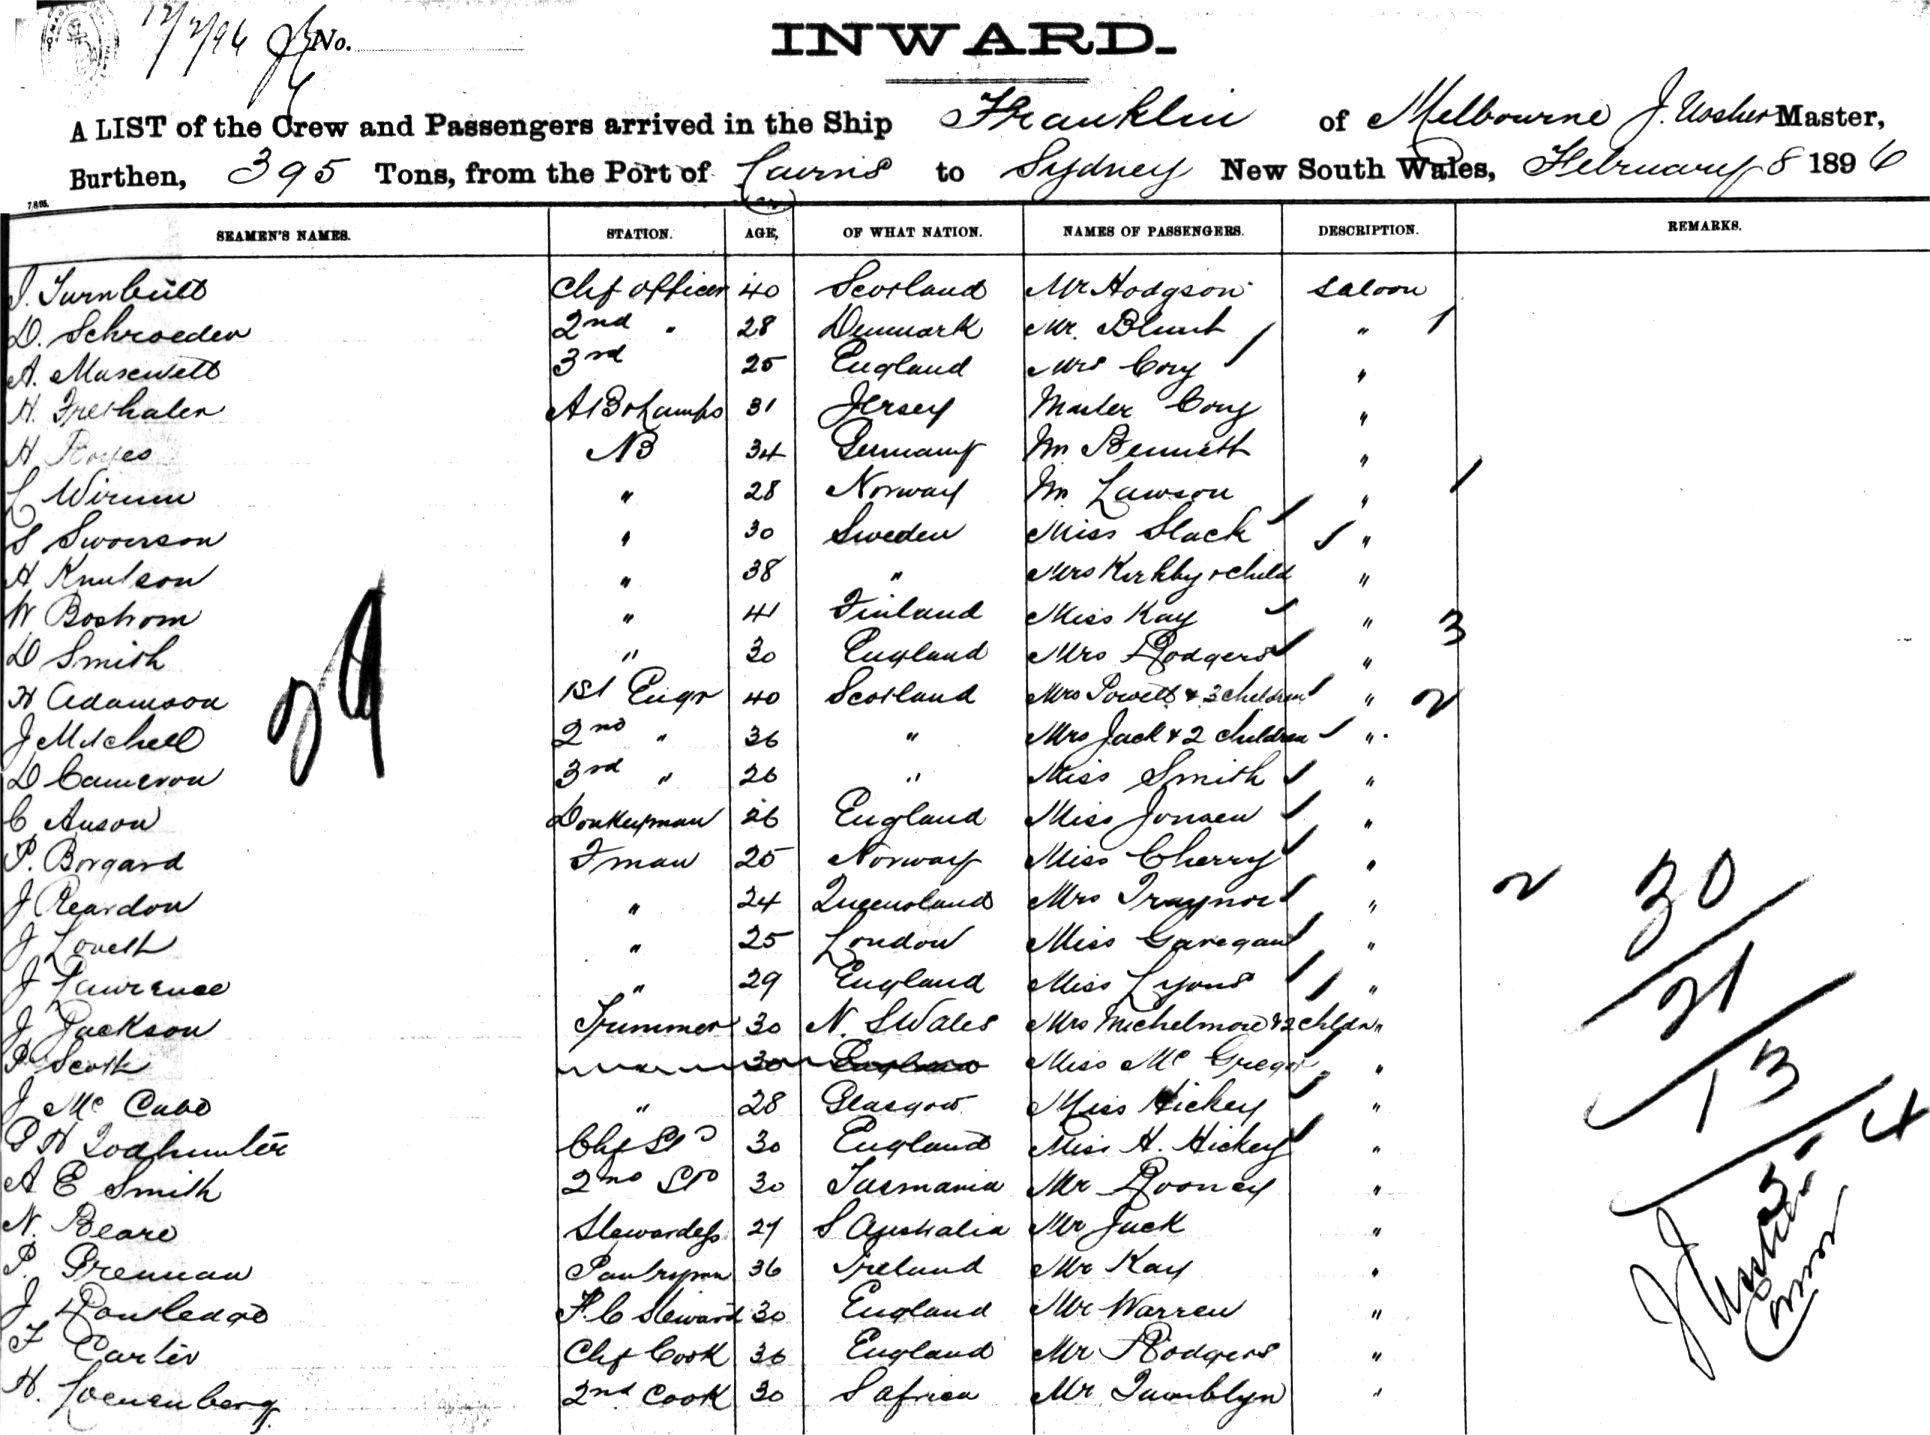 12/2/96 No.
INWARD.
A LIST of the Crew and Passengers arrived in the Ship Franklin of Melbourne J. Ussher Master,
Burthen, 395 Tons, from the Port of Cairns to Sydney New South Wales, February 8 1896
7.8.95.
SEAMEN'S NAMES. STATION. AGE, OF WHAT NATION. NAMES OF PASSENGERS. DESCRIPTION. REMARKS.
J. Turnbull Chf officer 40 Scotland Mr Hodgson Saloon
D. Schroeder 2nd " 28 Denmark Mr. Blunt " 1
A. Maxwell 3rd 25 England Mrs Cory "
H. AB & Lamps 31 Jersey Master Cory "
H AB 34 Germany Mr Bennett "
L " 28 Norway Mr Lawson " 1
S " 30 Sweden Miss Slack "
A Knutson " 38 " Mrs Kirkby & child "
W Bostrom " 41 Finland Miss Kay " 3
D Smith " 30 England Mrs Rodgers "
H Adamson 1st Engr 40 Scotland Mrs Powell & 3 children " 2
J Mitchell 2nd " 36 " Mrs Jack & 2 children "
D Cameron 3rd " 26 " Miss Smith "
C Anson Donkeyman 26 England Miss Jonsen "
P. Borgard Fman 25 Norway Miss Cherry "
J Reardon " 24 Queensland Mrs Traynor " 2 30
J Lovett " 25 London Miss Garegan "
J Lawrence " 29 England Miss Lyons " 21
J Jackson Trimmer 30 N. S Wales Mrs Michelmore & 2 chldn "
P Scott 30 England Miss Mc Gregor " 13
J Mc Cabe " 28 Glasgow Miss Hickey " 4
P H Todhunter Chf Std 30 England Miss H. Hickey "
A E Smith 2nd Std 30 Tasmania Mr Rooney "
N. Beare Stewardess 27 S Australia Mr Jack "
P. Brennan Pantryman 36 Ireland Mr Kay "
J Routledge F. C Steward 30 England Mr Warren "
F Carter Chf Cook 36 England Mr Rodgers "
H. Loewenberg 2nd Cook 30 S Africa Mr Tamblyn "
29
J Ussher